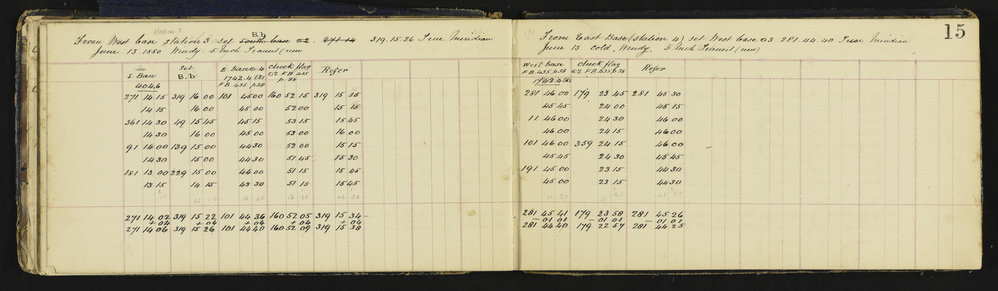 15
B.b
From West base station 3 set South base 02. 271-14 319.15.26. True Meridian
June 13 1880 Windy 5 Inch Transit (new)
S. Base Set B.b E. base 04 Check flag Refer
B.b 1742.4 lks 02 F.B. 435
4046 F.B. 435 p.38 p. 38
271 14 15 319 16 00 101 45 00 160 52 15 319 15 15
14 15 16 00 45 00 52 00 15 15
361 14 30 49 15 45 45 15 53 15 15 45
14 30 16 00 45 00 53 00 16 00
91 14 00 139 15 00 44 30 52 00 15 15
14 30 15 00 44 30 51 45 15 30
181 13 00 229 15 00 44 00 51 15 15 45
13 15 14 15 43 30 51 15 15 45
271 14 02 319 15 22 101 44 36 160 52 05 319 15 34
+ 04 + 04 + 04 + 04 + 04
271 14 06 319 15 26 101 44 40 160 52 09 319 15 38
From East Base (station 4) set West base 03 281.44.40 True Meridian
June 13 Cold, Windy. 5 Inch Transit (new)
West base Check flag Refer
F.B. 435 p.38 02 F.B. 435 p.38
1742.4 lks
281 46 00 179 23 45 281 45 30
45 45 24 00 45 15
11 46 00 24 30 46 00
46 00 24 15 46 00
101 46 00 359 24 15 46 00
45 45 24 30 45 45
191 45 00 23 15 44 30
45 00 23 15 44 30
281 45 41 179 23 58 281 45 26
- 01 01 - 01 01 - 01 01
281 44 40 179 22 57 281 44 25